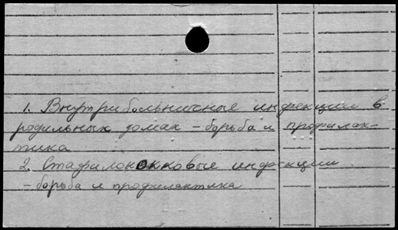 1. Внутрибольничные инфекции в
родильных домах – борьба и профилак-
тика
2. Стафилококковые инфекции
– борьба и профилактика